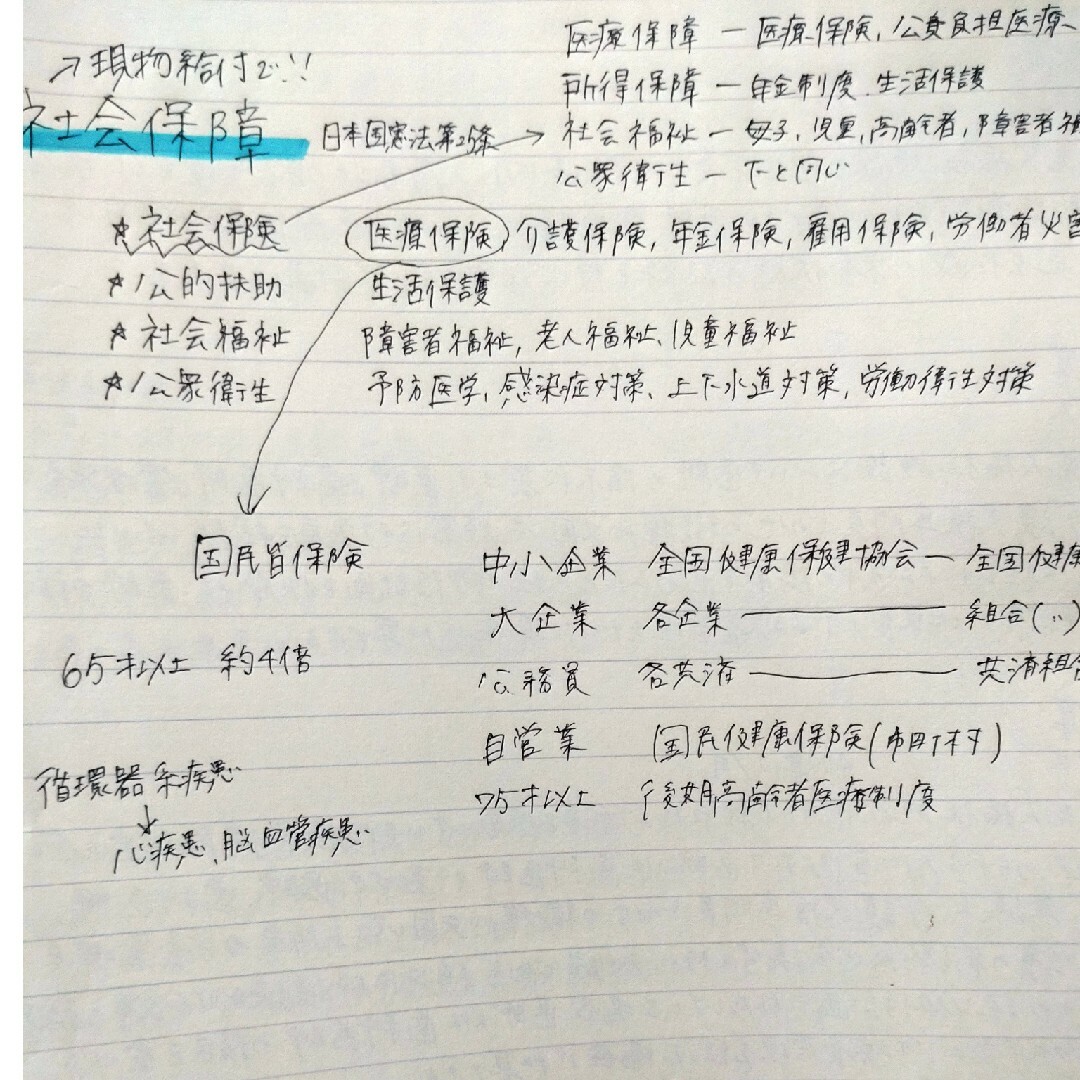 医療保障 ー 医療保険, 公費負担医療
→現物給付で!!
所得保障 ー 年金制度、生活保護
社会保障 日本国憲法第25条 → 社会福祉 ー 母子, 児童, 高齢者, 障害者福
公衆衛生 ー 下と同じ
☆社会保険 医療保険 介護保険, 年金保険, 雇用保険, 労働者災害
☆公的扶助 生活保護
☆社会福祉 障害者福祉, 老人福祉、児童福祉
☆公衆衛生 予防医学, 感染症対策、上下水道対策, 労働衛生対策
国民皆保険 中小企業 全国健康保健協会 ー 全国健康
大企業 各企業 ー 組合(〃)
65才以上 約4倍 公務員 各共済 ー 共済組合
自営業 国民健康保険(市町村)
循環器系疾患 75才以上 後期高齢者医療制度
↓
心疾患、脳血管疾患